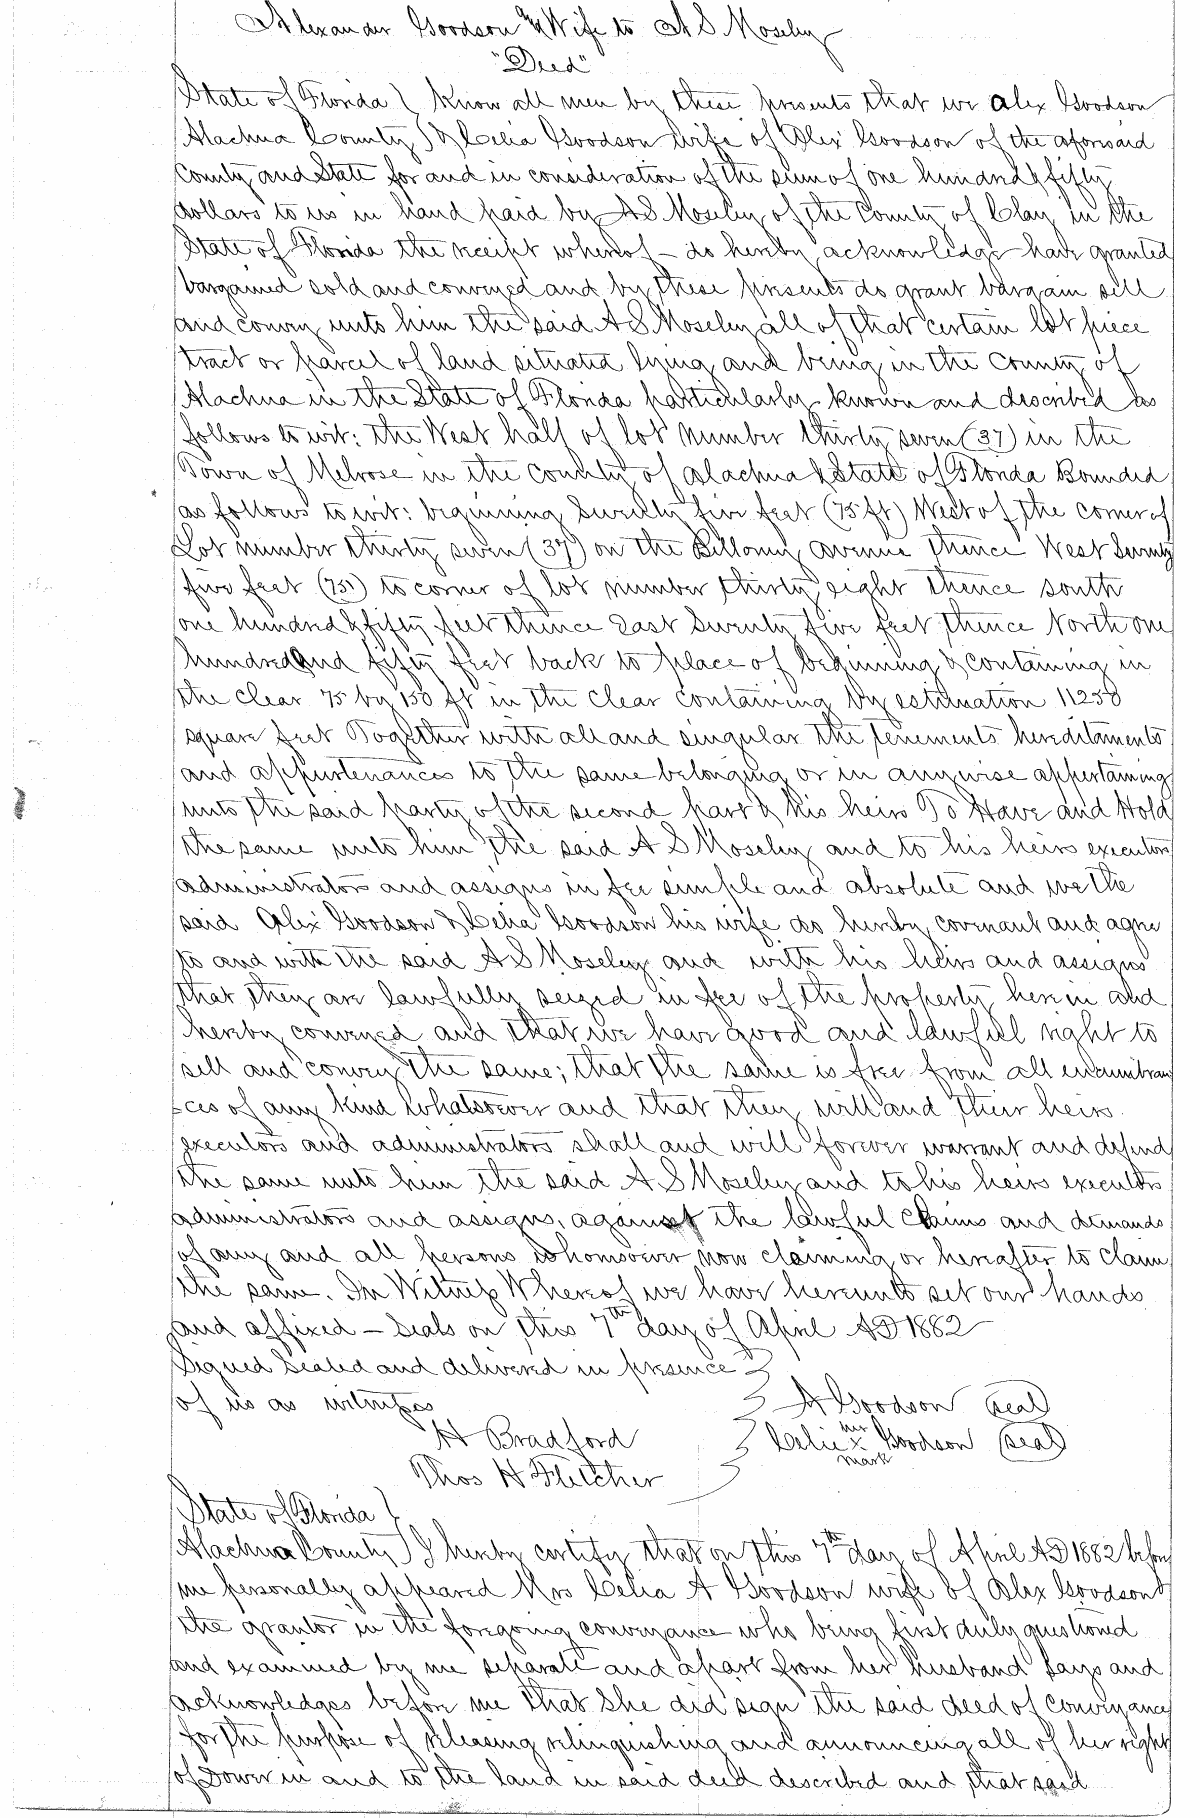 Alexander Goodson & Wife to A S Moseley
"Deed"
State of Florida } Know all men by these presents that we Alex Goodson
Alachua County } & Celia Goodson wife of Alex Goodson of the aforesaid
County and State for and in consideration of the sum of one hundred & fifty
dollars to us in hand paid by A S Moseley of the County of Clay in the
State of Florida the receipt whereof – do hereby acknowledge have granted
bargained sold and conveyed and by these presents do grant bargain sell
and convey unto him the said A S Moseley all of that certain lot piece
tract or parcel of land situated lying and being in the County of
Alachua in the State of Florida particularly known and described as
follows to wit: the West half of lot Number thirty seven (37) in the
Town of Melrose in the County of Alachua & State of Florida Bounded
as follows to wit: beginning Seventy five feet (75 ft) West of the corner of
Lot number thirty seven (37) on the Bellomy avenue thence West Seventy
five feet (75) to corner of lot number thirty eight thence south
one hundred & fifty feet thence East Seventy five feet thence North one
hundred and fifty feet back to place of beginning & containing in
the clear 75 by 150 ft in the clear containing by estimation 11250
square feet Together with all and singular the tenements hereditaments
and appurtenances to the same belonging or in anywise appertaining
unto the said party of the second part & his heirs To Have and Hold
the same unto him the said A S Moseley and to his heirs executors
administrators and assigns in fee simple and absolute and we the
said Alex Goodson & Celia Goodson his wife do hereby covenant and agree
to and with the said A S Moseley and with his heirs and assigns
that they are lawfully seized in fee of the property herein and
hereby conveyed and that we have good and lawful right to
sell and convey the same; that the same is free from all encumbran
=ces of any kind whatsoever and that they will and their heirs
executors and administrators shall and will forever warrant and defend
the same unto him the said A S Moseley and to his heirs executors
administrators and assigns, against the lawful claims and demands
of any and all persons whomsoever now claiming or hereafter to claim
the same. In Witness Whereof we have hereunto set our hands
and affixed – Seals on this 7th day of April AD 1882
Signed Sealed and delivered in presence }
of us as witnesses } A Goodson (seal)
H Bradford } Celia her x mark Goodson (seal)
Thos H Fletcher }
State of Florida }
Alachua County } I hereby certify that on this 7th day of April AD 1882 before
me personally appeared Mrs Celia A Goodson wife of Alex Goodson
the grantor in the foregoing conveyance who being first duly questioned
and examined by me separate and apart from her husband says and
acknowledges before me that She did sign the said deed of conveyance
for the purpose of releasing relinquishing and announcing all of her right
of Dower in and to the land in said deed described and that said